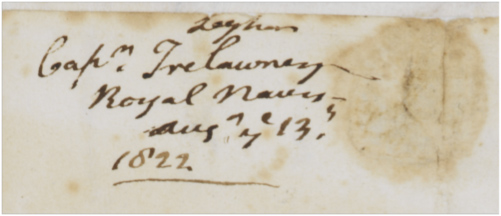 Leghorn
Capn. Trelawney
Royal Navy
Augt. ye 13.
1822